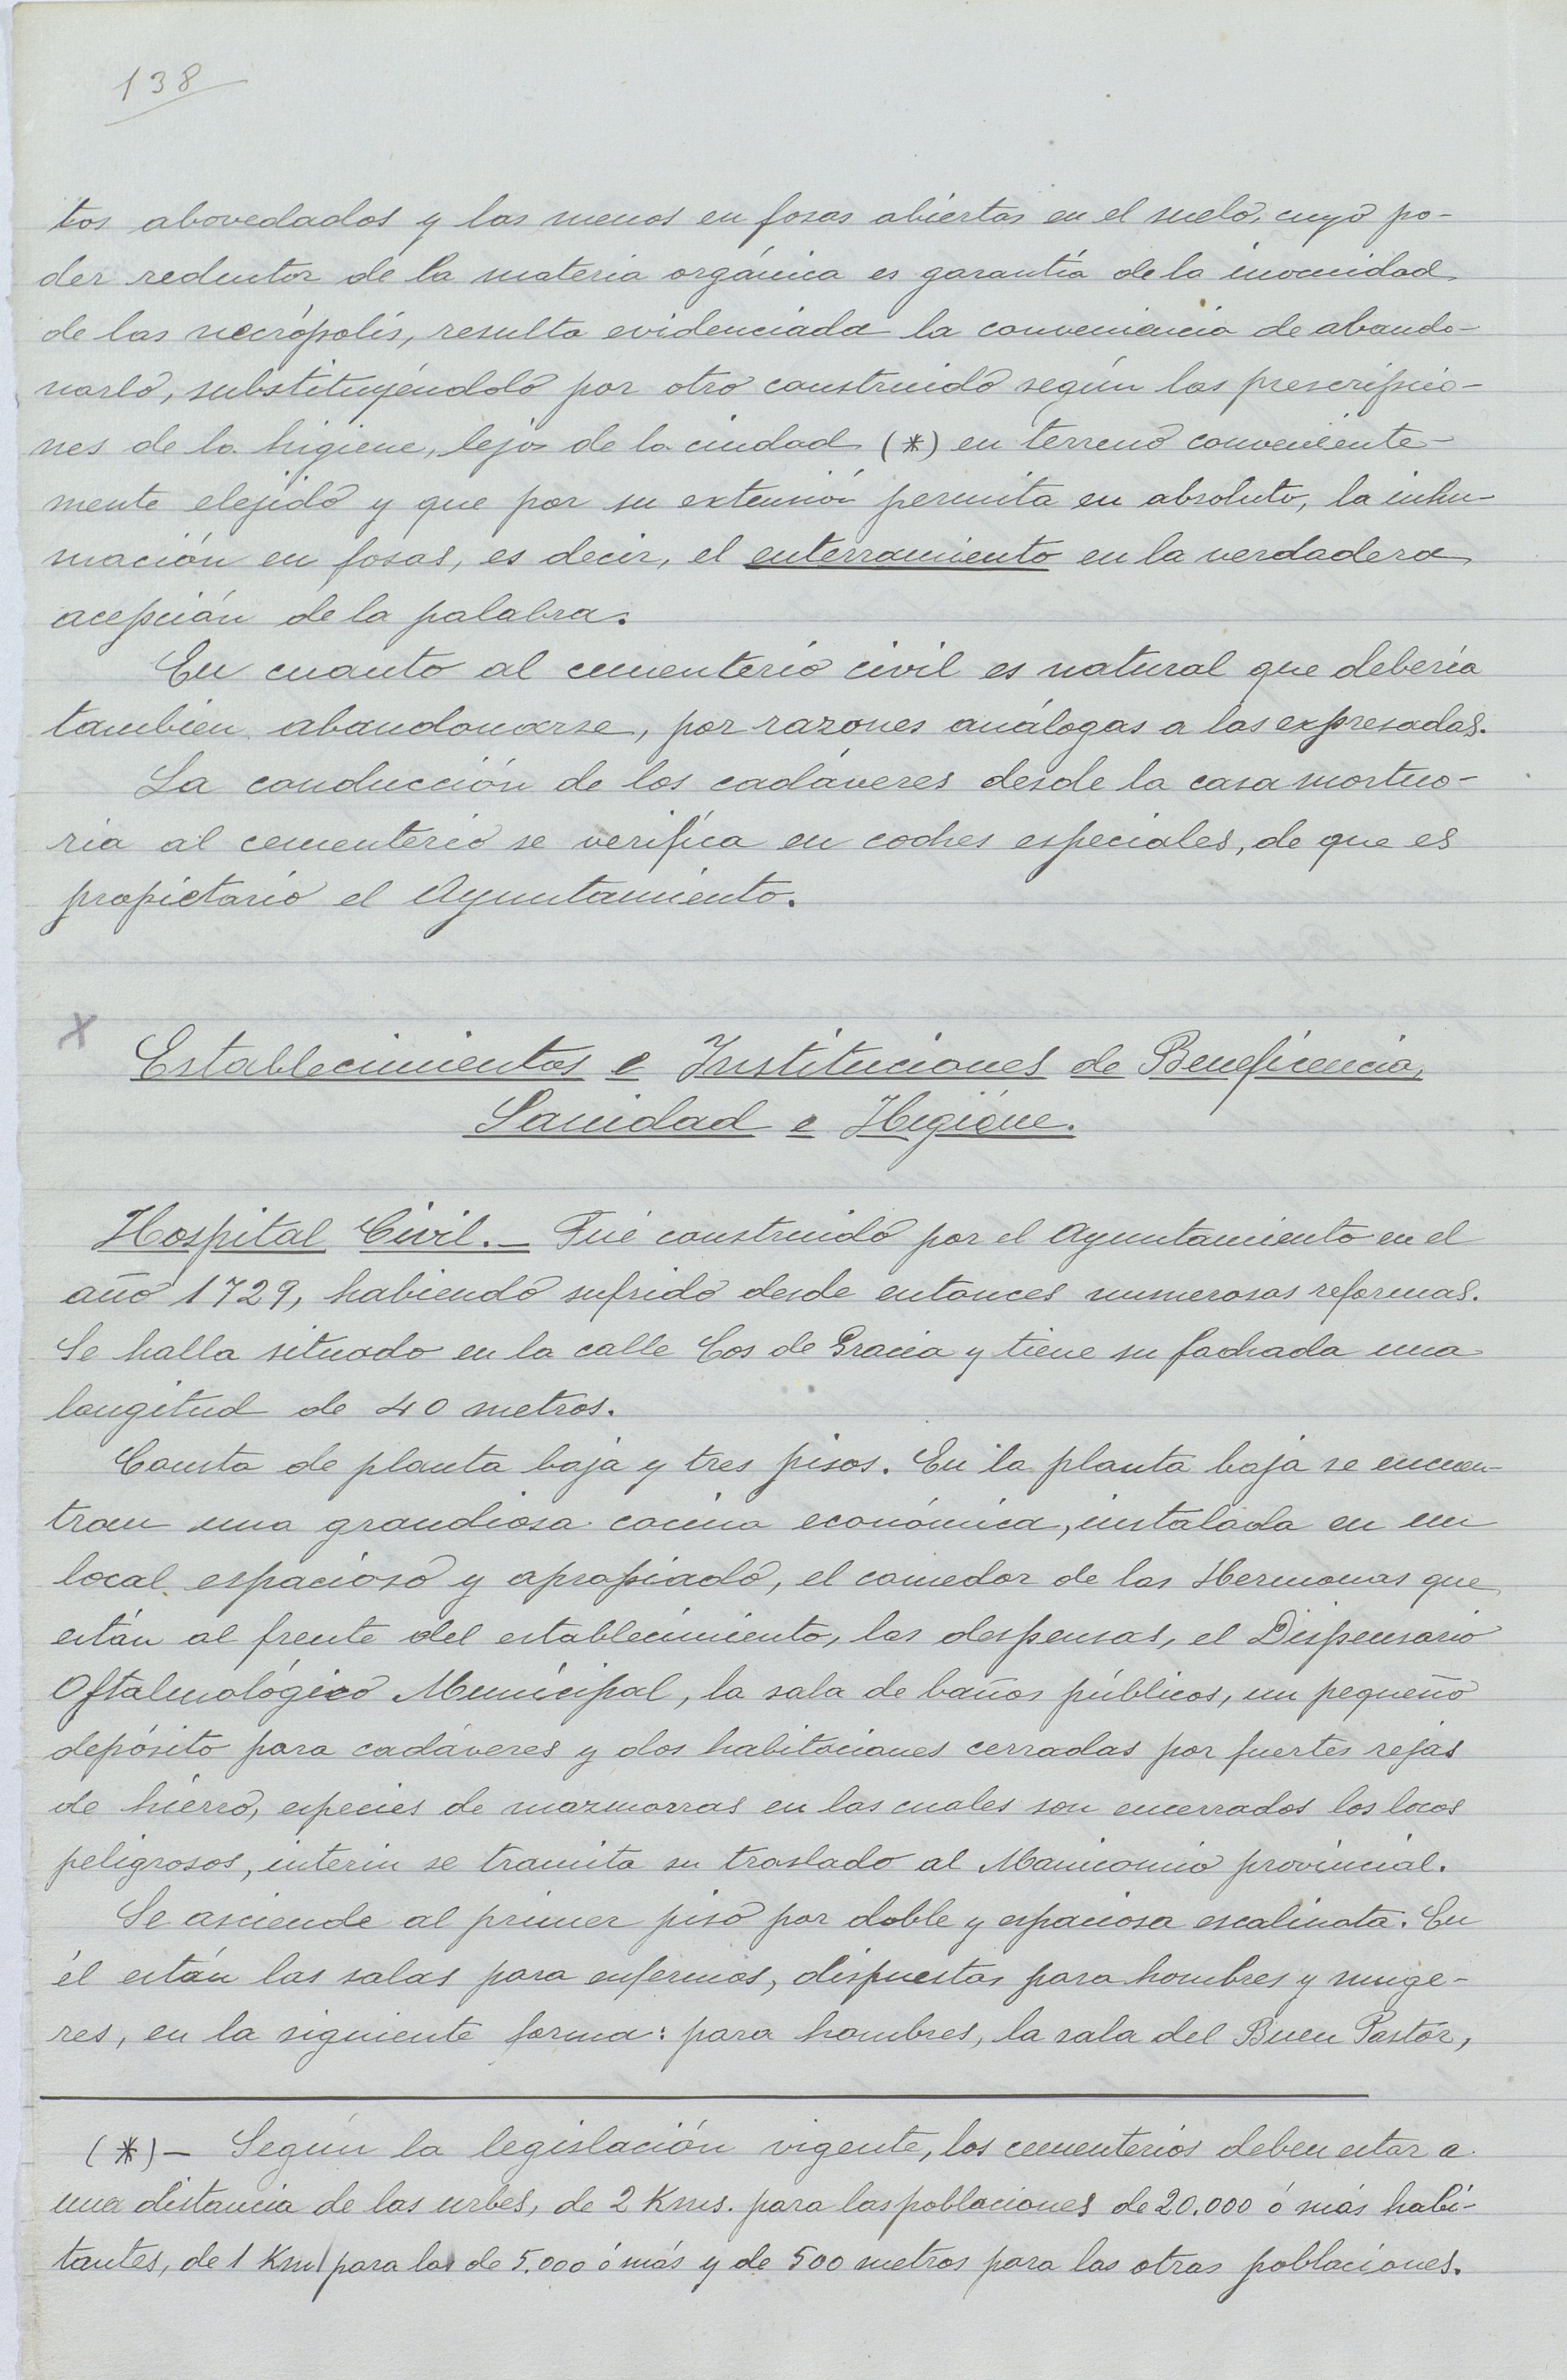 138
tos abovedados y las menos en fosas abiertas en el suelo, cuyo po-
der reductor de la materia orgánica es garantía de la inocuidad
de las necrópolis, resulta evidenciada la conveniencia de abando-
narlo, substituyéndolo por otro construido según las prescripcio-
nes de la higiene, lejos de la ciudad (*) en terreno conveniente-
mente elejido y que por su extensión permita en absoluto, la inhu-
mación en fosas, es decir, el enterramiento en la verdadera
acepción de la palabra.
En cuanto al cementerio civil es natural que debería
tambien abandonarse, por razones análogas a las expresadas.
La conducción de los cadáveres desde la casa mortuo-
ria al cementerio se verifica en coches especiales, de que es
propietario el Ayuntamiento.
X
Establecimientos e Instituciones de Beneficencia,
Sanidad e Higiéne.
Hospital Civil.— Fué construido por el Ayuntamiento en el
año 1729, habiendo sufrido desde entonces numerosas reformas.
Se halla situado en la calle Cos de Gracia y tiene su fachada una
longitud de 40 metros.
Consta de planta baja y tres pisos. En la planta baja se encuen-
tran una grandiosa cocina económica, instalada en un
local espacioso y apropiado, el comedor de las Hermanas que
están al frente del establecimiento, las despensas, el Dispensario
Oftalmológico Municipal, la sala de baños públicos, un pequeño
depósito para cadáveres y dos habitaciones cerradas por fuertes rejas
de hierro, especies de mazmorras en las cuales son encerrados los locos
peligrosos, interin se tramita su traslado al Manicomio provincial.
Se asciende al primer piso por doble y espaciosa escalinata. En
él están las salas para enfermos, dispuestas para hombres y muge-
res, en la siguiente forma: para hombres, la sala del Buen Pastor,
(*)— Según la legislación vigente, los cementerios deben estar a
una distancia de las urbes, de 2 Kms. para las poblaciones de 20.000 ó más habi-
tantes, de 1 Km para las de 5.000 ó más y de 500 metros para las otras poblaciones.